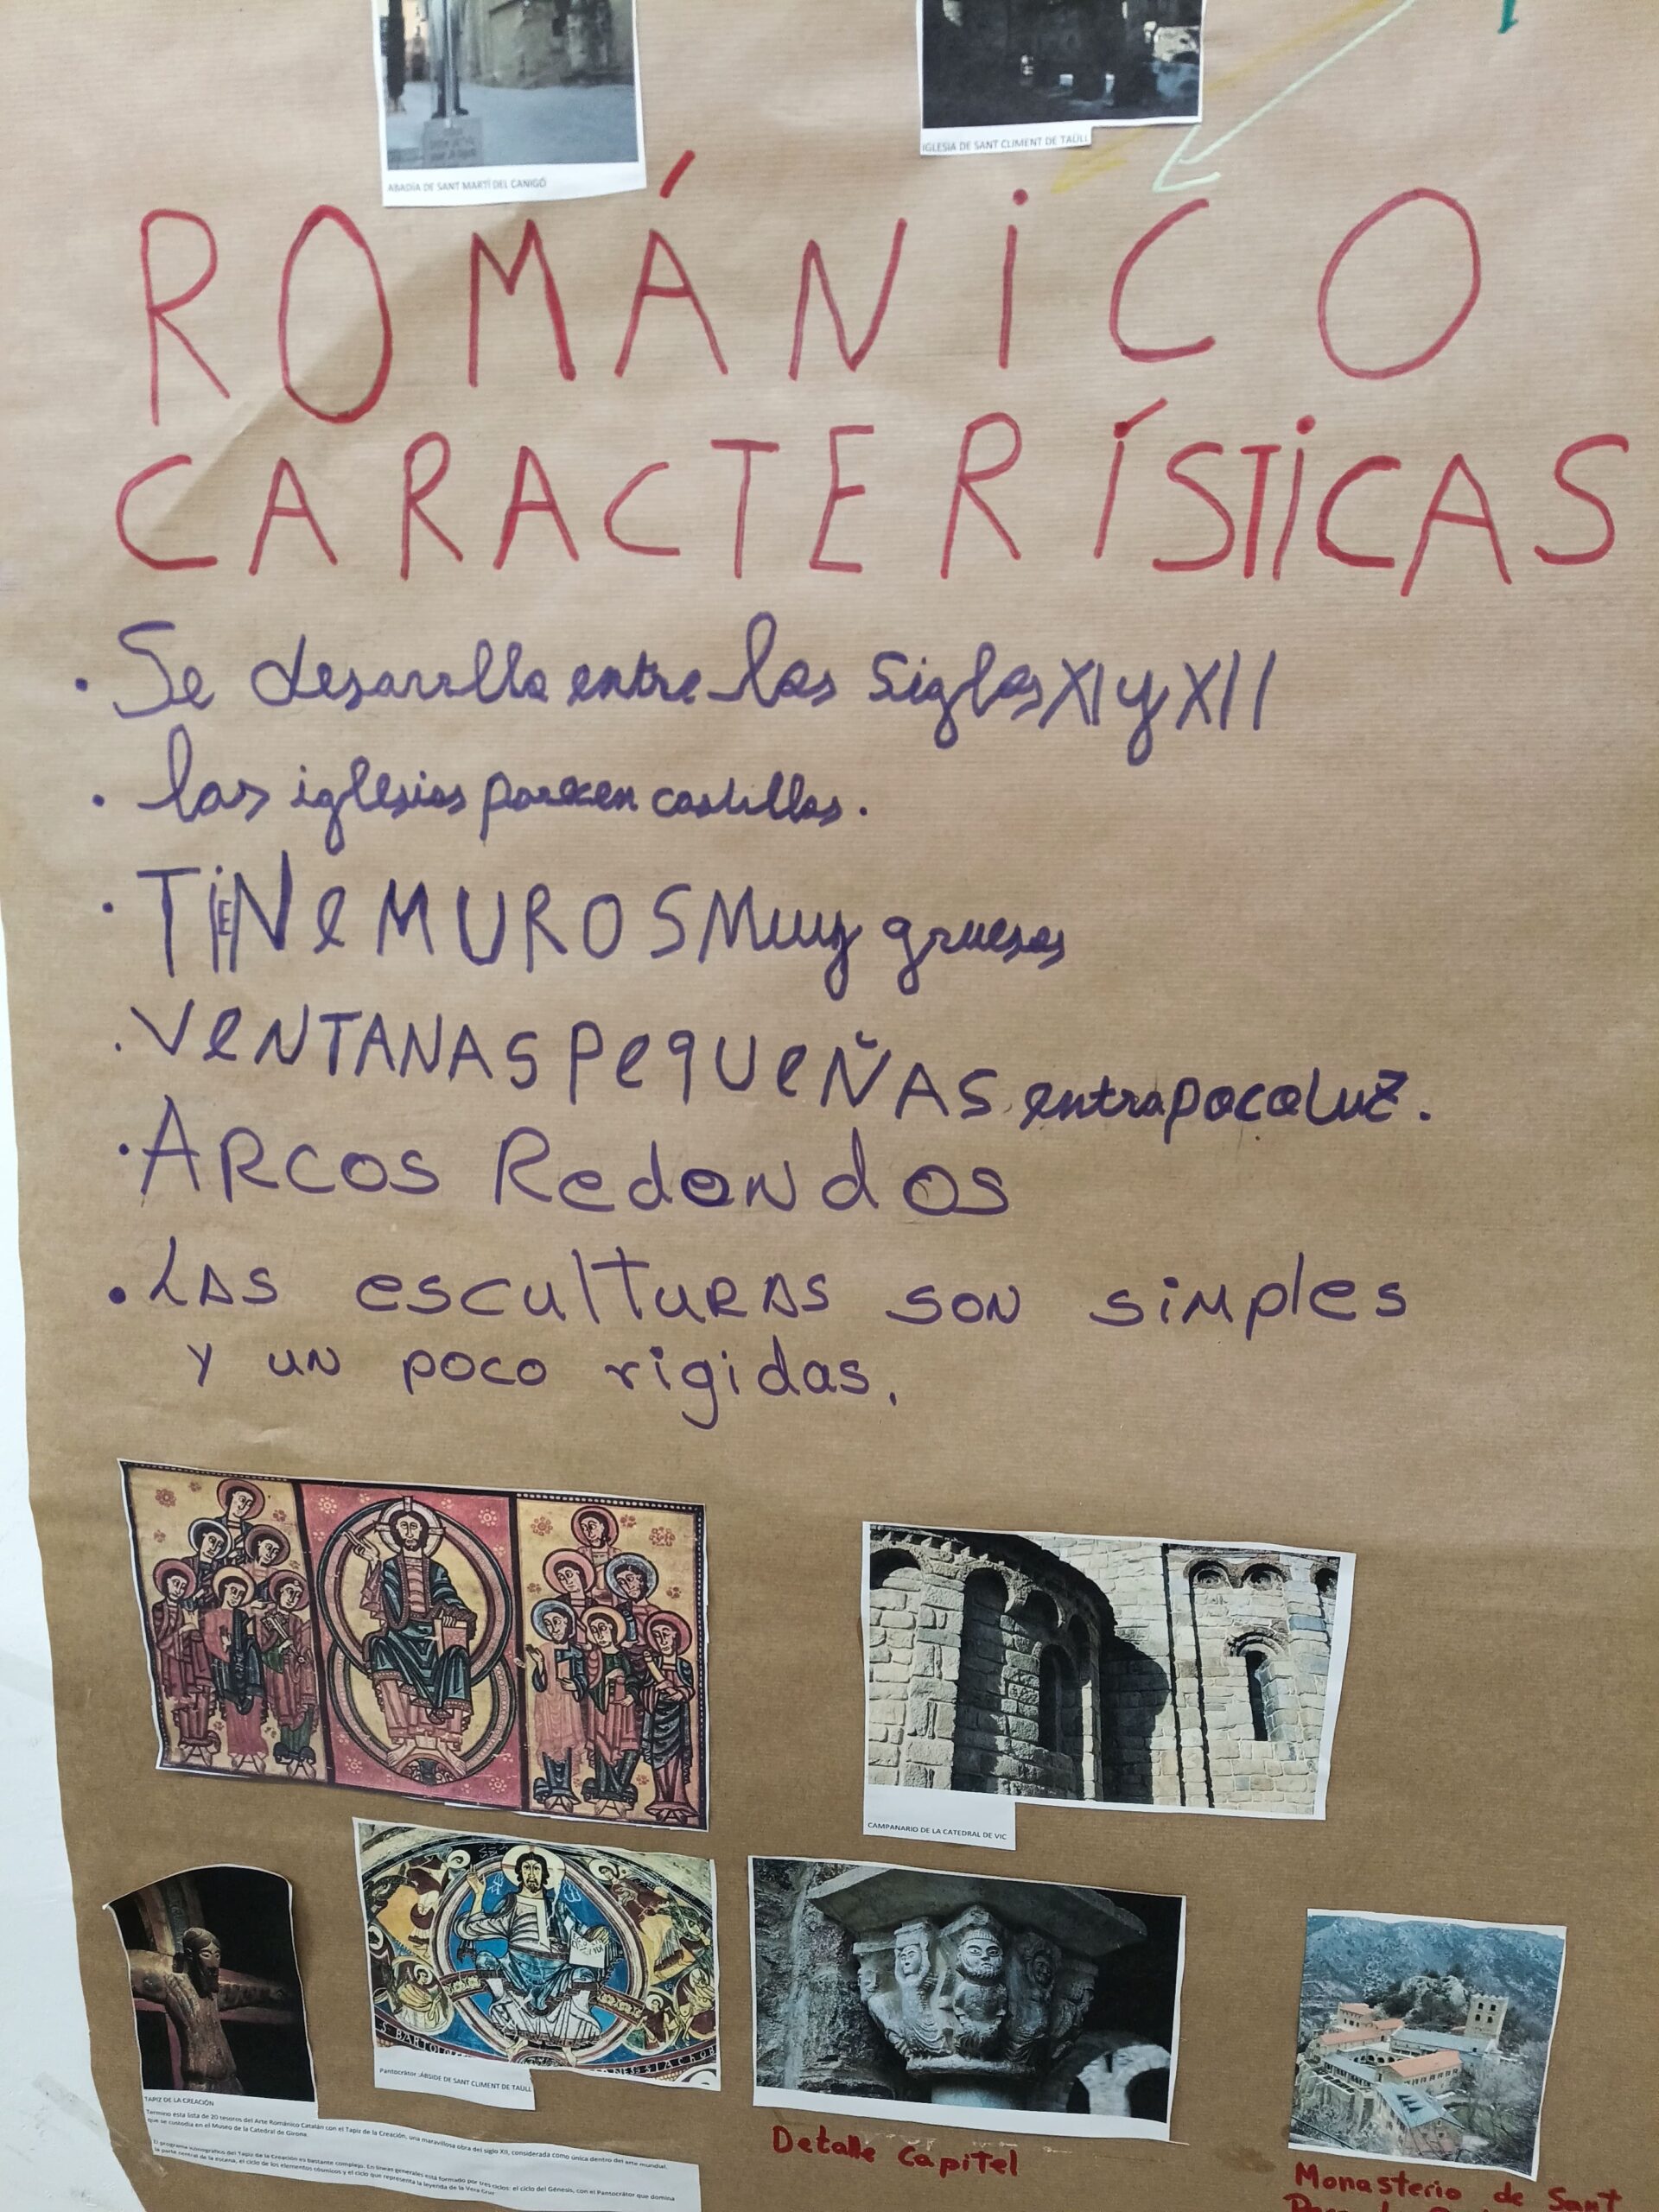 ABADÍA DE SANT MARTÍ DEL CANIGÓ
IGLESIA DE SANT CLIMENT DE TAÜLL
ROMÁNICO
CARACTERÍSTICAS
· Se desarrolla entre los siglos XI y XII
· las iglesias parecen castillos.
· TIENE MUROS Muy gruesos
· VENTANAS PEQUEÑAS entra poca luz.
· ARCOS Redondos
· LAS esculturas son simples
y un poco rigidas.
CAMPANARIO DE LA CATEDRAL DE VIC
Pantocrátor .ÁBSIDE DE SANT CLIMENT DE TAÜLL
TAPIZ DE LA CREACIÓN
Termino esta lista de 20 tesoros del Arte Románico Catalán con el Tapiz de la Creación, una maravillosa obra del siglo XII, considerada como única dentro del arte mundial,
que se custodia en el Museo de la Catedral de Girona.
El programa iconográfico del Tapiz de la Creación es bastante complejo. En líneas generales está formado por tres ciclos: el ciclo del Génesis, con el Pantocrátor que domina
la parte central de la escena, el ciclo de los elementos cósmicos y el ciclo que representa la leyenda de la Vera Creu
Detalle capitel
Monasterio de Sant